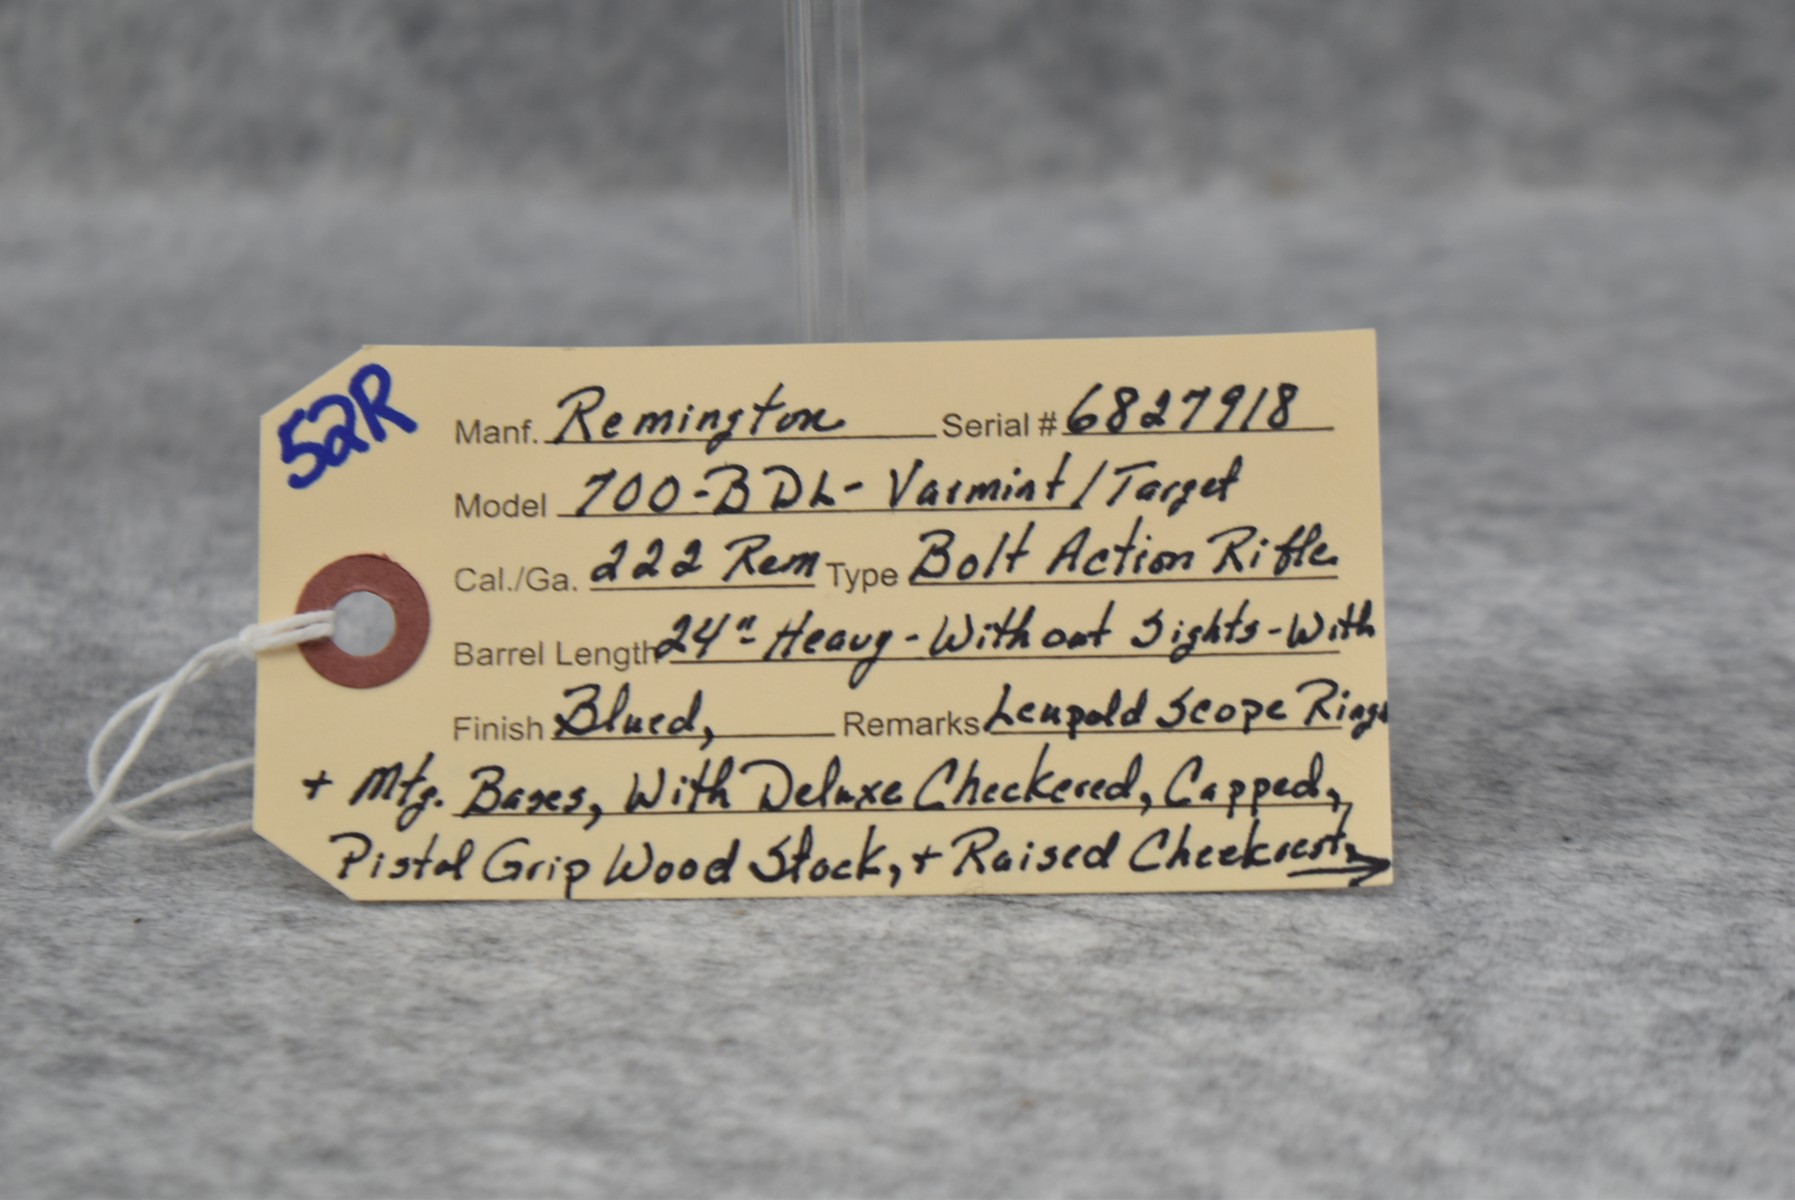 52R
Manf. Remington Serial # 6827918
Model 700-BDL- Varmint/Target
Cal./Ga. 222 Rem Type Bolt Action Rifle
Barrel Length 24"- Heavy - Without Sights - With
Finish Blued, Remarks Leupold Scope Rings
+ Mtg. Bases, With Deluxe Checkered, Capped,
Pistol Grip Wood Stock, + Raised Cheekrest, →